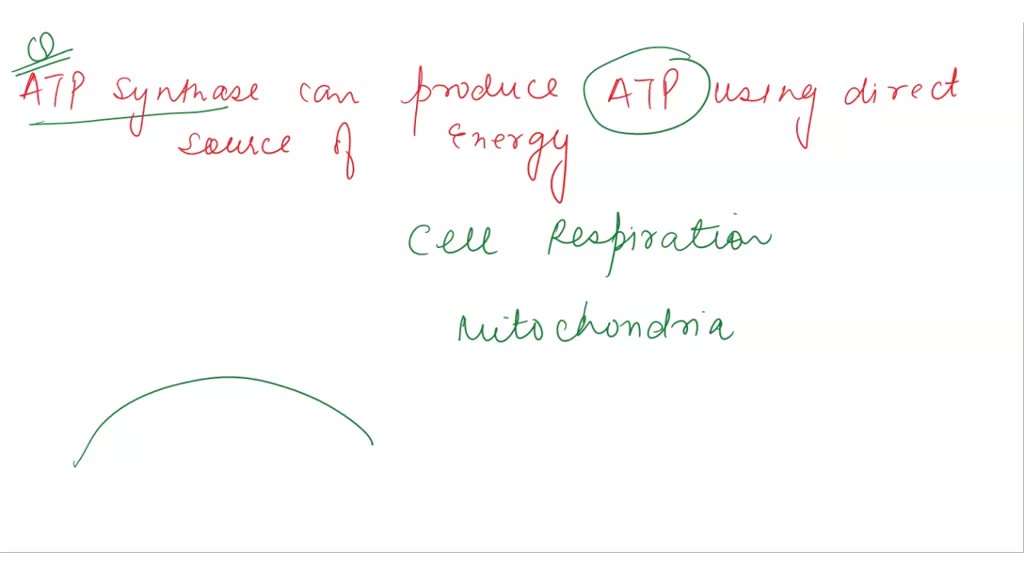 Q
ATP synthase can produce ATP using direct
source of Energy
Cell Respiration
Mitochondria